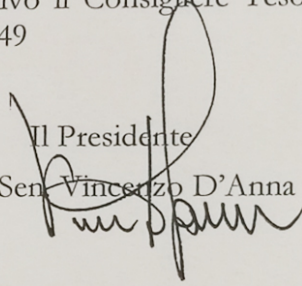 il Consigliere
49
Il Presidente
Sen. Vincenzo D'Anna